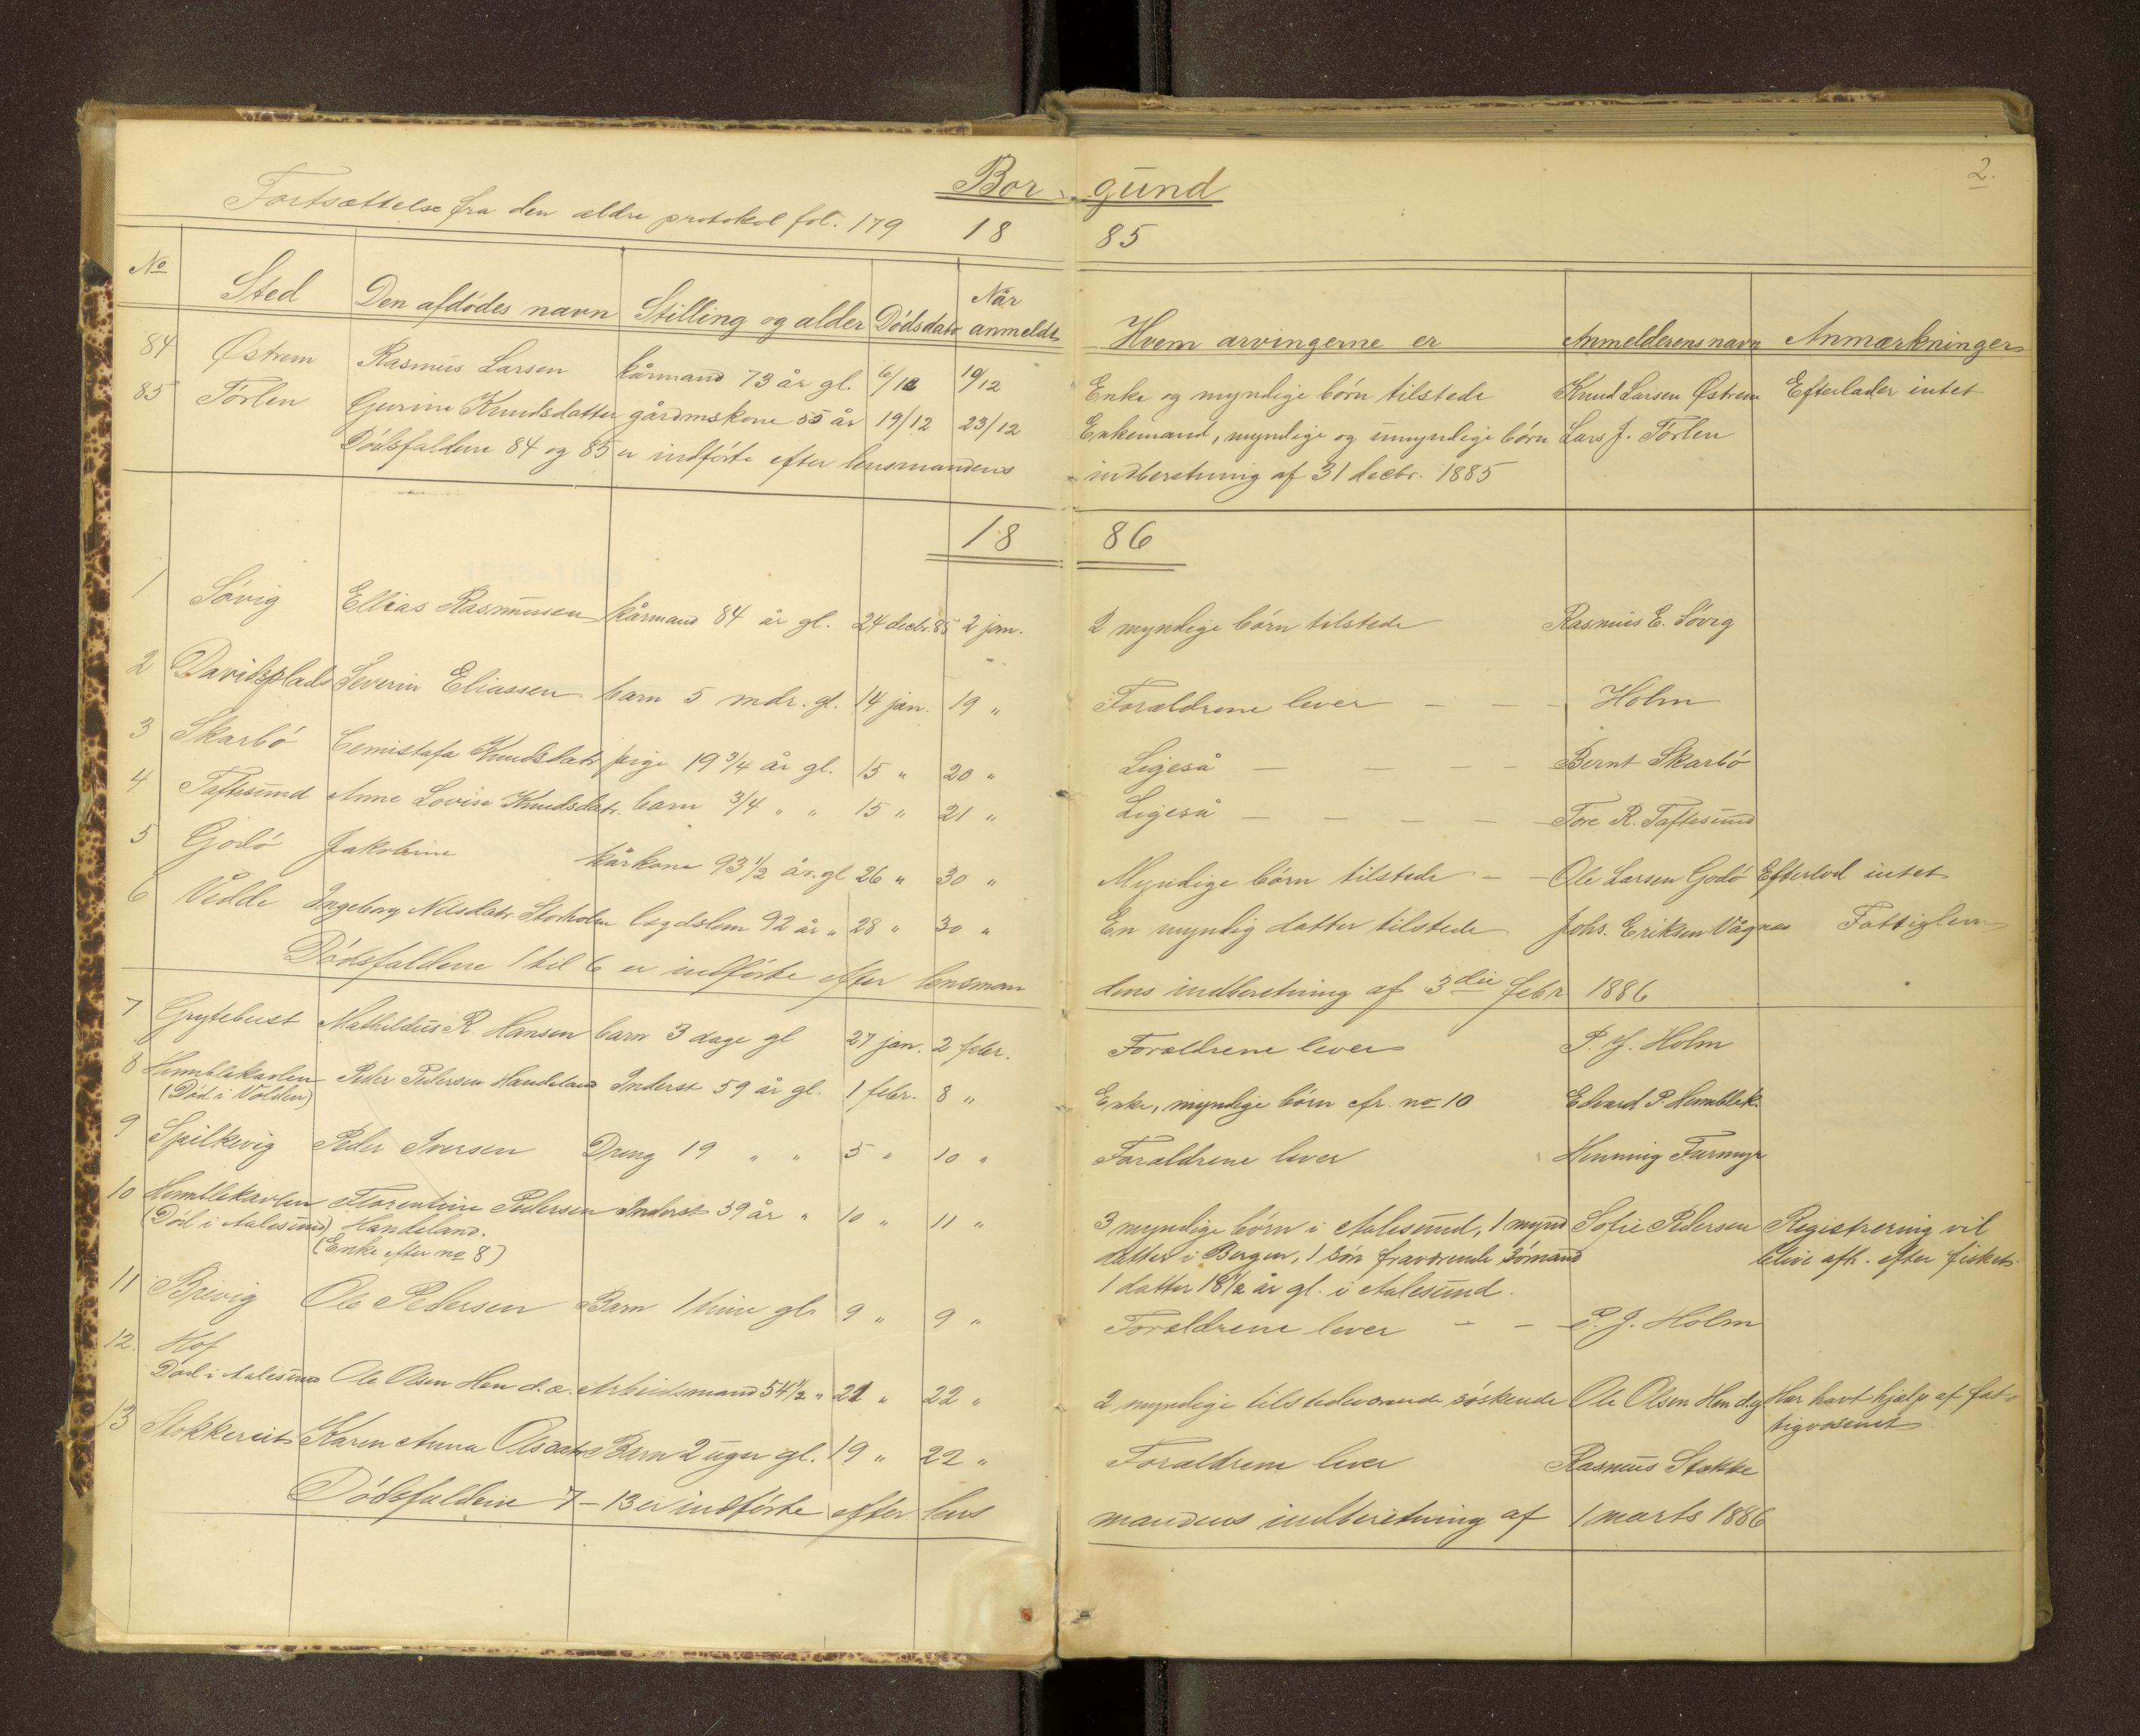 Bor- gund
2.
Fortsættelse fra den ældre protokol fol. 179 18 85
No Sted Den afdødes navn Stilling og alder Dødsdato Når anmeldt Hvem arvingerne er Anmelderens navn Anmærkninger
84 Østrem Rasmus Larsen kårmand 73 år gl. 6/12 10/12 Enke og myndige børn tilstede Knud Larsen Østrem Efterlader intet
85 Tørlen Gurine Knudsdatter gårdmskone 55 år 19/12 23/12 Enkemand, myndige og umyndige børn Lars J. Tørlen
Dødsfaldene 84 og 85 er indførte efter lensmandens indberetning af 31 decbr. 1885
18 86
1 Søvig Ellias Rasmussen kårmand 84 år gl. 24 decbr. 85 2 jan. 2 myndige børn tilstede Rasmus E. Søvig
2 Davidsplads Severin Eliassen barn 5 mdr. gl. 14 jan. 19 " Forældrene lever — — — Holm
3 Skarbø Knudsdatr pige 19 3/4 år gl. 15 " 20 " Ligeså — — — — Bernt Skarbø
4 Taftesund Anne Lovise Knudsdatr. barn 3/4 " " 15 " 21 " Ligeså — — — — — Tore R. Taftesund
5 Godø Jakobine kårkone 93 1/2 år. gl 26 " 30 " Myndige børn tilstede — — Ole Larsen Godø Efterlod intet
6 Vedde Ingeborg Nilsdatr Storholm lægdslem 92 år " 28 " 30 " En myndig datter tilstede Johs. Eriksen Vågnes Fattiglem
Dødsfaldene 1 til 6 er indførte efter lensman dens indberetning af 3die febr 1886
7 Grytebust Mathildus R. Hansen barn 3 dage gl 27 jan. 2 febr. Forældrene lever P. J. Holm
8 Humblekavlen Peder Pedersen Handeland Inderst 59 år gl. 1 febr. 8 " Enke, myndige børn cfr. no 10 Edvard P. Humblek.
(Død i Volden)
9 Spilkevig Peder Iversen Dreng 19 " " 5 " 10 " Forældrene lever Henning Furmyr
10 Humblekavlen Florentine Pedersen Inderst 59 år " 10 " 11 " 3 myndige børn i Aalesund, 1 mynd Sofie Pedersen Registrering vil
(Død i Aalesund) Handeland. datter i Bergen, 1 søn fraværende sømand blive afh. efter fisket.
(Enke efter no 8) 1 datter 18 1/2 år gl. i Aalesund.
11 Breivig Ole Pedersen Barn 1 time gl. 9 " 9 " Forældrene lever — — P. J. Holm
12. Hof
Død i Aalesund Ole Olsen Hen d.æ. Arbeidsmand 54 1/2 " 21 " 22 " 2 myndige tilstedeværende søskende Ole Olsen Hen d.y. Har havt hjelp af fat-
tigvæsenet.
13 Stokkereit Karen Anna Olsdatr Barn 2 uger gl. 19 " 22 " Forældrene lever Rasmus Stokke
Dødsfaldene 7 – 13 er indførte efter lens mandens indberetning af 1 marts 1886